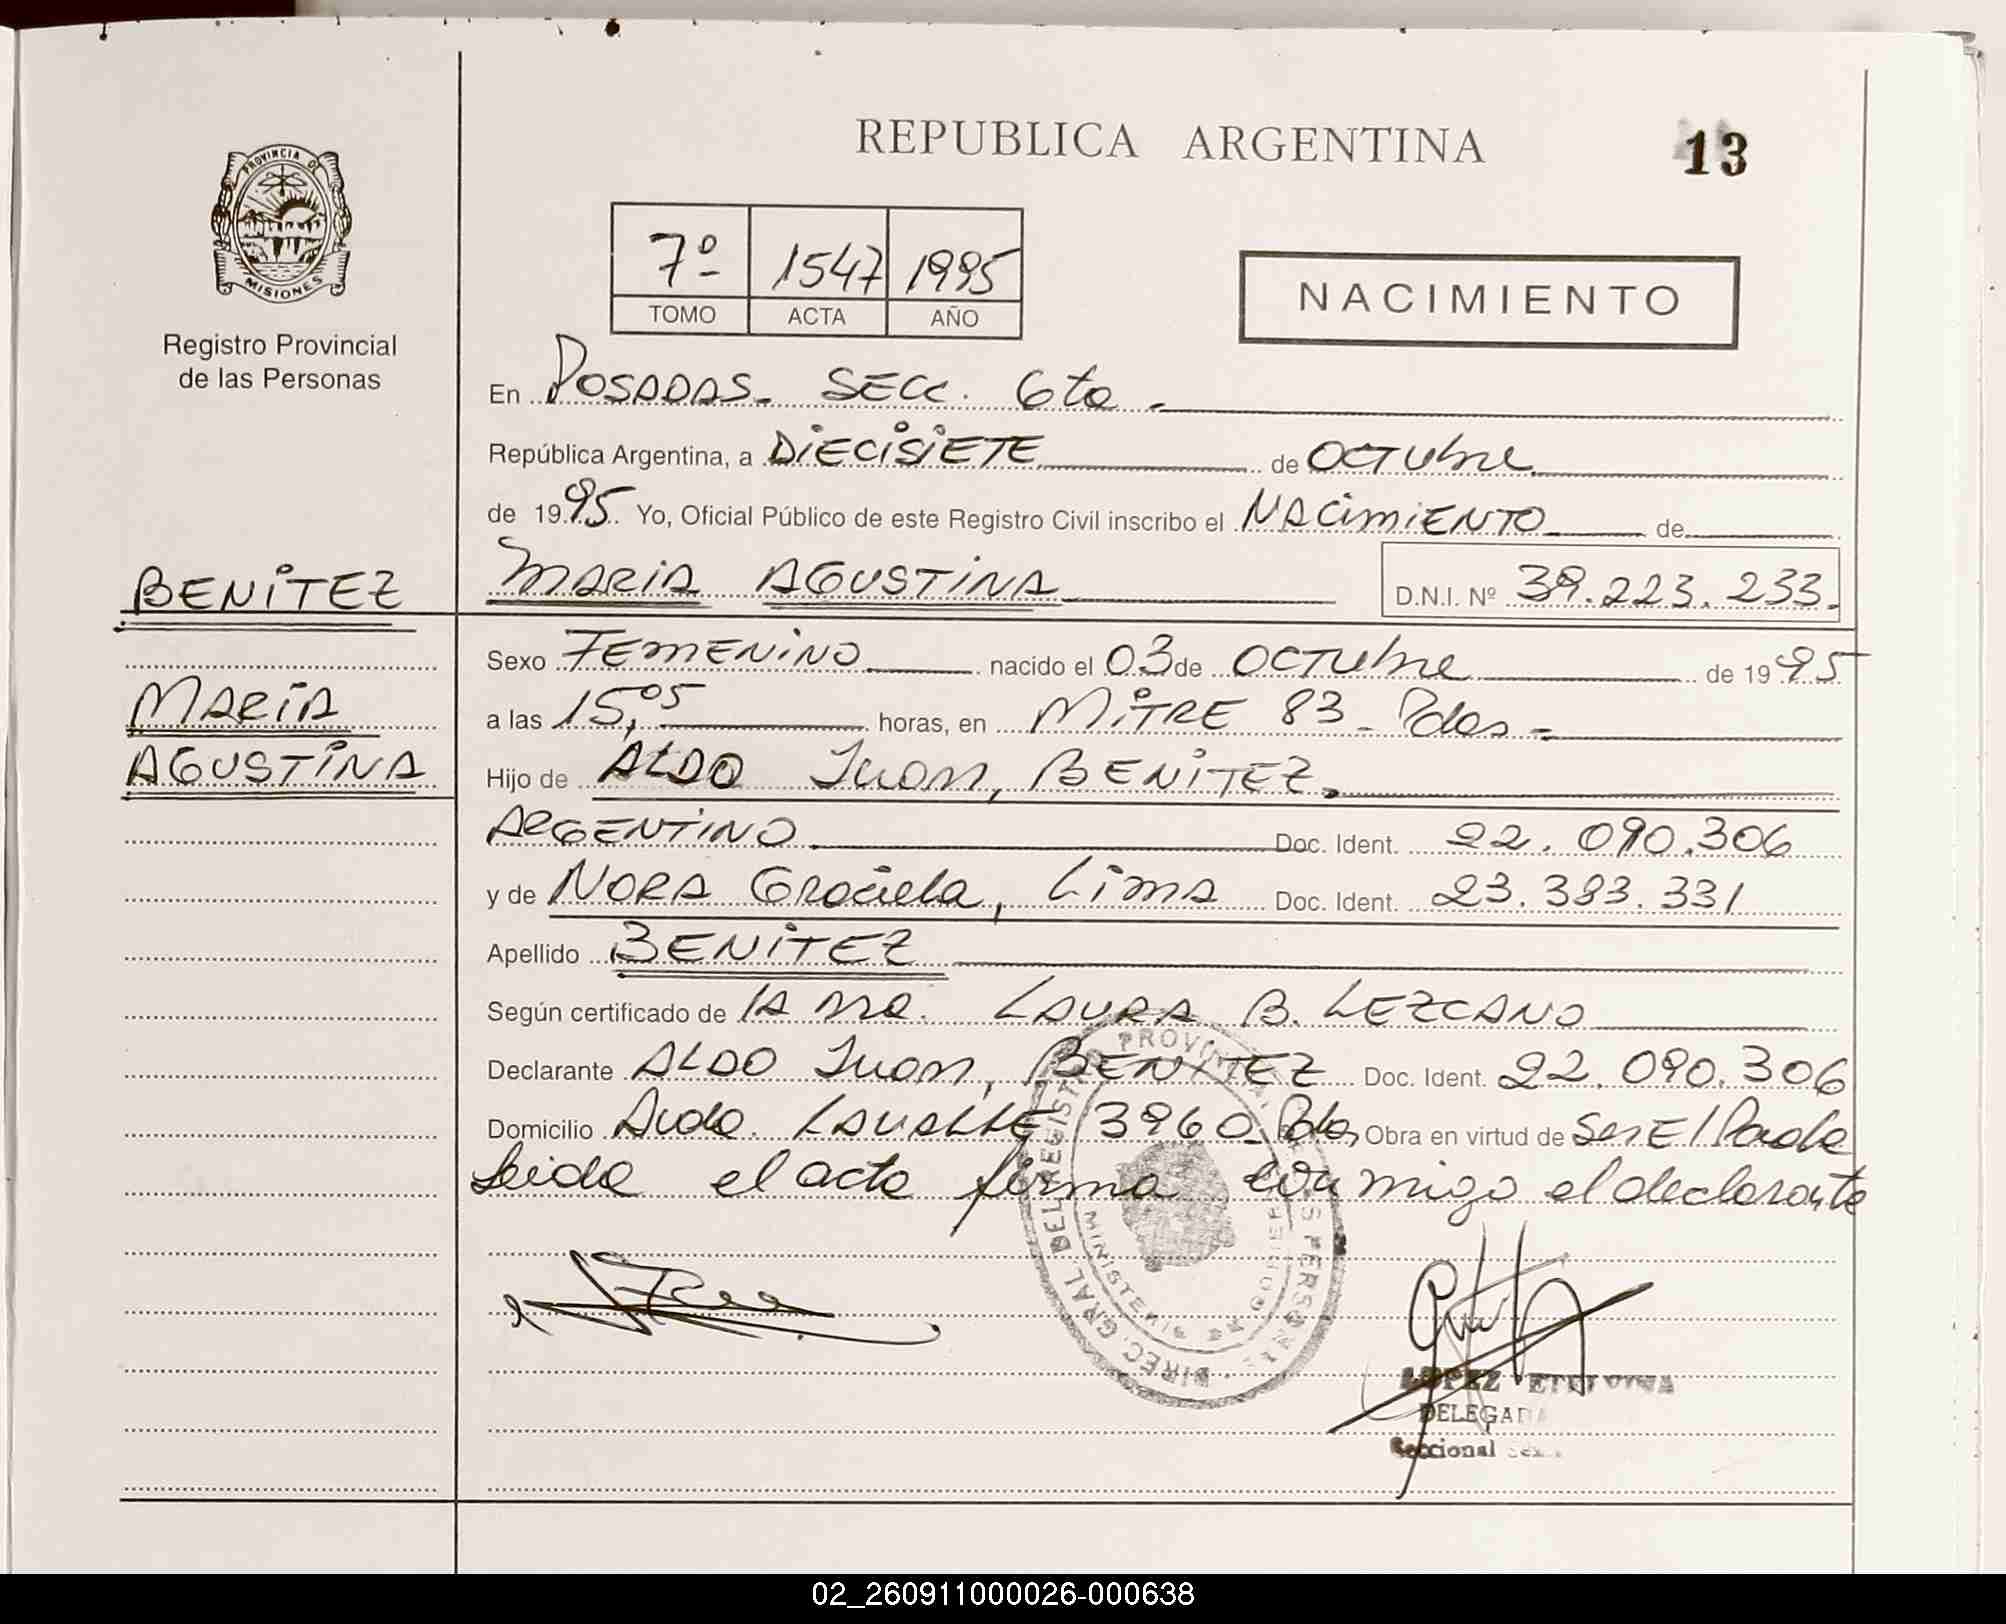 REPUBLICA ARGENTINA
13
PROVINCIA DE
MISIONES
Registro Provincial
de las Personas
7º 1547 1995
TOMO ACTA AÑO
NACIMIENTO
En POSADAS. SECC. 6ta.
República Argentina, a DIECISIETE de OCTUbre
de 1995 Yo, Oficial Público de este Registro Civil inscribo el NACIMIENTO de
BENITEZ
MARIA AGUSTINA D.N.I. Nº 39.223.233.
Sexo FEMENINO nacido el 03 de OCTUbre de 1995
MARIA
a las 15,05 horas, en MITRE 83 - Pdas -
AGUSTINA
Hijo de ALDO Juan, BENITEZ.
ARGENTINO Doc. Ident. 22.090.306
y de NORA Graciela, Lima Doc. Ident. 23.383.331
Apellido BENITEZ
Según certificado de LA LAURA B. LEZCANO
Declarante ALDO Juan, BENITEZ Doc. Ident. 22.090.306
Domicilio Avda. LAVALLE 3960 Pdas, Obra en virtud de Ser El Padre
Leida el acta firma conmigo el declarante
DIREC. GRAL DEL REGISTRO PROVINCIAL DE LAS PERSONAS
MINISTERIO GOBIERNO
LOPEZ
DELEGADA
Seccional
02_260911000026-000638